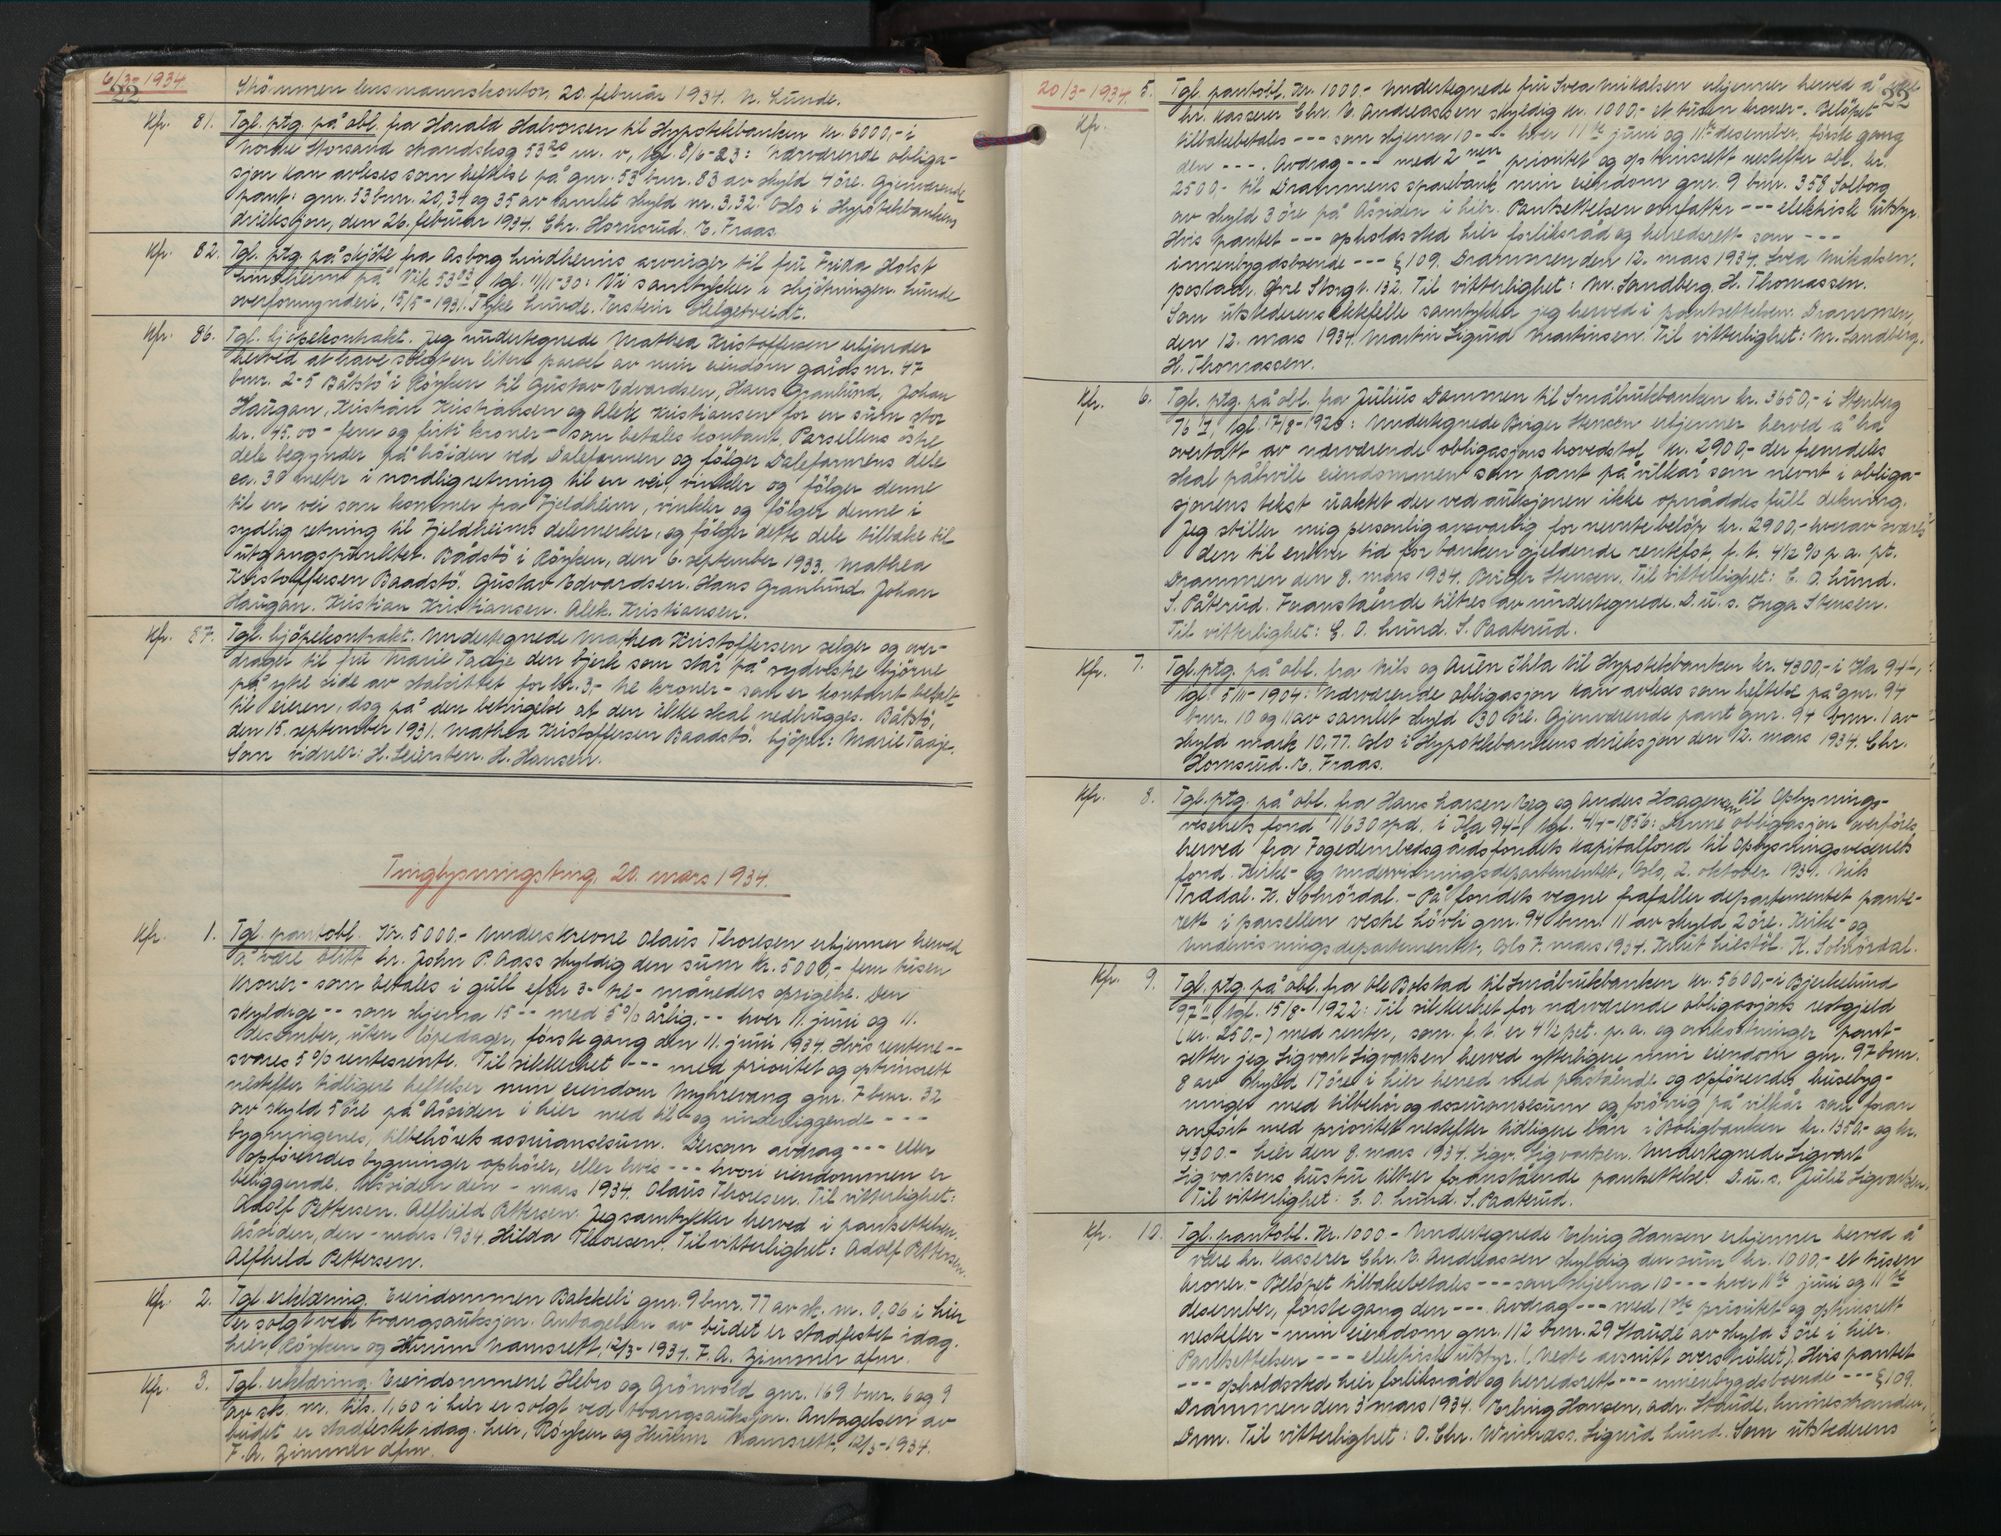 6/3-1934.
22
Strömmen lensmannskontor, 20. februar 1934. N. Lunde.
Kfr. 81. Tgl. ptg. på obl. fra Harald Halvorsen til Hypotekbanken kr. 6000,- i
Nordre Storsand strandskog 53 20 m. v., tgl. 8/6-23: Nærværende obliga-
sjon kan avleses som heftelse på gnr. 53 bnr. 83 av skyld 4 öre. Gjenværende
pant: gnr. 53 bnr. 20, 34 og 35 av samlet skyld m. 3.32. Oslo i Hypotekbankens
direksjon, den 26. februar 1934. Chr. Hornsrud. E. Fraas.
Kfr. 82. Tgl. ptg. på skjöte fra Asborg Lindheims arvinger til fru Frida Holst
Lindheim på Vik 53 tgl. 11/11-30: Vi samtykker i skjötningen. Lunde
overformynderi, 15/5-1931. Tyke Lunde. Torstein Helgetveidt.
Kfr. 86. Tgl. kjöpekontrakt. Jeg undertegnede Mathea Kristoffersen erkjender
herved at have solgt en liten parsel av min eiendom gårdsnr. 47
bnr. 2-5 Båtstö i Röyken til Gustav Edvardsen, Hans Granlund, Johan
Haugan, Kristian Kristiansen og Alek. Kristiansen for en sum stor
kr. 45.00 - fem og firti kroner - som betales kontant. Parsellens östre
dele begynder på höiden ved Daleformen og fölger Daleformens dele
ca. 30 meter i nordlig retning til en vei, vinkler og fölger denne
til en vei som kommer fra Fjeldheim, vinkler og fölger denne i
sydlig retning til Fjeldheims delemerker, og fölger dette dele tilbake til
utgangspunktet. Baadstö i Röyken, den 6. september 1933. Mathea
Kristoffersen Baadstö. Gustav Edvardsen. Hans Granlund. Johan
Haugan. Kristian Kristiansen. Alek. Kristiansen.
Kfr. 87. Tgl. kjöpekontrakt. Undertegnede Mathea Kristoffersen selger og over-
drager til fru Marie Taaje den bjerk som står på sydvestre hjörne
på ytre side av stakittet for kr. 3,- tre kroner - som er kontant betalt
til eieren, dog på den betingelse at den ikke skal nedhugges. Båtstö,
den 15. september 1931. Mathea Kristoffersen Baadstö. Kjöper: Marie Taaje.
Som vidner: H. Seiersten. H. Hansen.
Tinglysningsting 20. mars 1934.
Kfr. 1. Tgl. pantobl. Kr. 5000,- Underskrevne Olaus Thoresen erkjenner herved
å være blitt hr. John P. Aass skyldig den sum kr. 5000,- fem tusen
kroner - som betales i gull efter 3- tre- måneders opsigelse. Den
skyldige -- som skjema 15 -- med 5% årlig -- hver 11. juni og 11.
desember, uten löpedager, förste gang den 11. juni 1934. Hvis rentene --
svares 5% rentesrente. Til sikkerhet --- med prioritet og optrinsrett
nestefter tidligere heftelser min eiendom Myhrevang gnr. 7 bnr. 32
av skyld 5 öre på Åssiden i hier med til- og underliggende ---
bygningenes, tilbehörets assuransesum. Dersom avdrag --- eller
opförendes bygninger ophörer, eller hvis --- hvori eiendommen er
beliggende. Åssiden den - mars 1934. Olaus Thoresen. Til vitterlighet:
Adolf Pettersen. Alfhild Pettersen. Jeg samtykker herved i pantsettelsen.
Åssiden, den - mars 1934. Hilda Thoresen. Til vitterlighet: Adolf Pettersen.
Alfhild Pettersen.
Kfr. 2. Tgl. erklæring. Eiendommen Bakkeli gnr. 9 bnr. 77 av sk. m. 0,06 i hier
er solgt ved tvangsauksjon. Antagelsen av budet er stadfestet idag.
Lier, Röyken og Hurum namsrett, 12/3-1934. F. A. Zimmer dfm.
Kfr. 3. Tgl. erklæring. Eiendommene Hebro og Grönvold gnr. 169 bnr. 6 og 9
av sk. m. tils. 1,60 i hier er solgt ved tvangsauksjon. Antagelsen av
budet er stadfestet idag. Lier, Röyken og Hurum namsrett, 12/3-1934.
F. A. Zimmer dfm.
20/3-1934.
22
Kfr. 5. Tgl. pantobl. Kr. 1000.- Undertegnede fru Svea Mikalsen erkjenner herved å
hr. kasserer Chr. E. Andreassen skyldig kr. 1000,- et tusen kroner-. Belöpet
tilbakebetales --- som skjema 10 --- hver 11te juni og 11te desember, förste gang
den ---. Avdrag --- med 2nen prioritet og optrinsrett nestefter obl. kr.
2500,- til Drammens sparebank min eiendom gnr. 9 bnr. 358 Solborg
av skyld 3 öre på Åssiden i hier. Pantsettelsen omfatter --- elektrisk utstyr.
Hvis pantet --- opholdssted hier forliksråd og herredsrett som ---
innenbygdsboende --- § 109. Drammen den 12. mars 1934. Svea Mikalsen.
postadr. Övre Storgt. 132. Til vitterlighet: M. Sandberg. H. Thomassen.
Som utstederens ektefelle samtykker jeg herved i pantsettelsen. Drammen,
den 12. mars 1934. Martin Sigurd Martinsen. Til vitterlighet: M. Sandberg.
H. Thomassen.
Kfr. 6. Tgl. ptg. på obl. fra Julius Dammen til Småbrukbanken kr. 3650,- i Stenberg
76 tgl. 17/8-1926: Undertegnede Birger Stensen erkjenner herved å ha
overtatt av nærværende obligasjons hovedstol kr. 2900,- der fremdeles
skal påhvile eiendommen som pant på vilkår som nevnt i obliga-
sjonens tekst uaktet der ved auksjonen ikke opnåddes full dekning.
Jeg stiller mig personlig ansvarlig for nevnte belöp kr. 2900,- hvorav svares
den til enhver tid for banken gjeldende rentefot, f. t. 4 1/2 % p. a. pt.
Drammen den 8. mars 1934. Birger Stensen. Til vitterlighet: E. O. Lund.
S. Påterud. Foranstående tiltres av undertegnede. D. u. s. Inga Stensen.
Til vitterlighet: E. O. Lund. S. Paaterud.
Kfr. 7. Tgl. ptg. på obl. fra Nils og Auen Ihla til Hypotekbanken kr. 4300,- i Ila 94 1,
tgl. 5/11-1904: Nærværende obligasjon kan avleses som heftelse på gnr. 94
bnr. 10 og 11 av samlet skyld 30 öre. Gjenværende pant gnr. 94 bnr. 1 av
skyld mark 10.77. Oslo i Hypotekbankens direksjon den 12. mars 1934. Chr.
Hornsrud. E. Fraas.
Kfr. 8. Tgl. ptg. på obl. fra Hans Larsen Eeg og Anders Haagensen til Oplysnings-
vesenets fond 11630 spd. i Ila 94 1, tgl. 4/4-1856: Denne obligasjon overföres
herved fra Fogedembedsgårdsfondets kapitalfond til Oplysningsvesenets
fond. Kirke- og undervisningsdepartementet, Oslo, 2. oktober 1931. Nils
Trædal. K. Solnördal. - På fondets vegne frafaller departementet pante-
rett i parsellen vestre Lövli gnr. 94 bnr. 11 av skyld 2 öre. Kirke- og
undervisningsdepartementet, Oslo 7. mars 1934. Knut Liestöl. K. Solnördal.
Kfr. 9. Tgl. ptg. på obl. fra Ole Bolstad til Småbrukbanken kr. 5600,- i Bjerkelund
97 tgl. 15/8-1922: Til sikkerhet for nærværende obligasjons restgjeld
(kr. 250.-) med renter, som f. t. er 4 1/2 pct. p. a. og omkostninger pant-
setter jeg Sigvart Sigvartsen herved ytterligere min eiendom gnr. 97 bnr.
8 av skyld 17 öre i hier herred med påstående og opförendes husebyg-
ninger med tilbehör og assuransesum og forövrig på vilkår som foran
anfört med prioritet nestefter tidligere lån i Boligbanken kr. 1350.- og kr.
4300.- hier den 8. mars 1934. Sigv. Sigvartsen. Undertegnede Sigvart
Sigvartsens hustru tiltrer foranstående pantsettelse. D. u. s. Julie Sigvartsen.
Til vitterlighet: E. O. Lund. S. Paaterud.
Kfr. 10. Tgl. pantobl. Kr. 1000.- Undertegnede Erling Hansen erkjenner herved å
være hr. kasserer Chr. E. Andreassen skyldig den sum kr. 1000,- et tusen
kroner - Belöpet tilbakebetales --- som skjema 10 --- hver 11te juni og 11te
desember, förste gang den --- Avdrag --- med 1ste prioritet og optrinsrett
nestefter - min eiendom gnr. 112 bnr. 29 Staude av skyld 3 öre i hier.
Pantsettelsen --- elektrisk utstyr. (Neste avsnitt overströket). Hvis pantet
--- opholdssted hier forliksråd og herredsrett --- innenbygdsboende --- § 109.
Drammen den 3 mars 1934. Erling Hansen, adr. Staude, Linnesstranden,
Drm. Til vitterlighet: O. Chr. Wriness. Sigurd Lund. Som utstederens